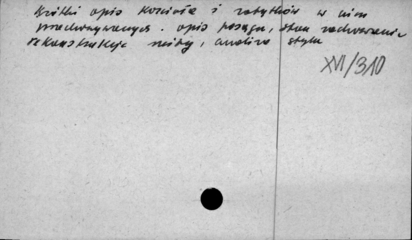 Krótki opis kościoła i zabytków w nim
przechowywanych. opis posągu, stan zachowania
rekonstrukcja niszy, analiza stylu
XVI/310